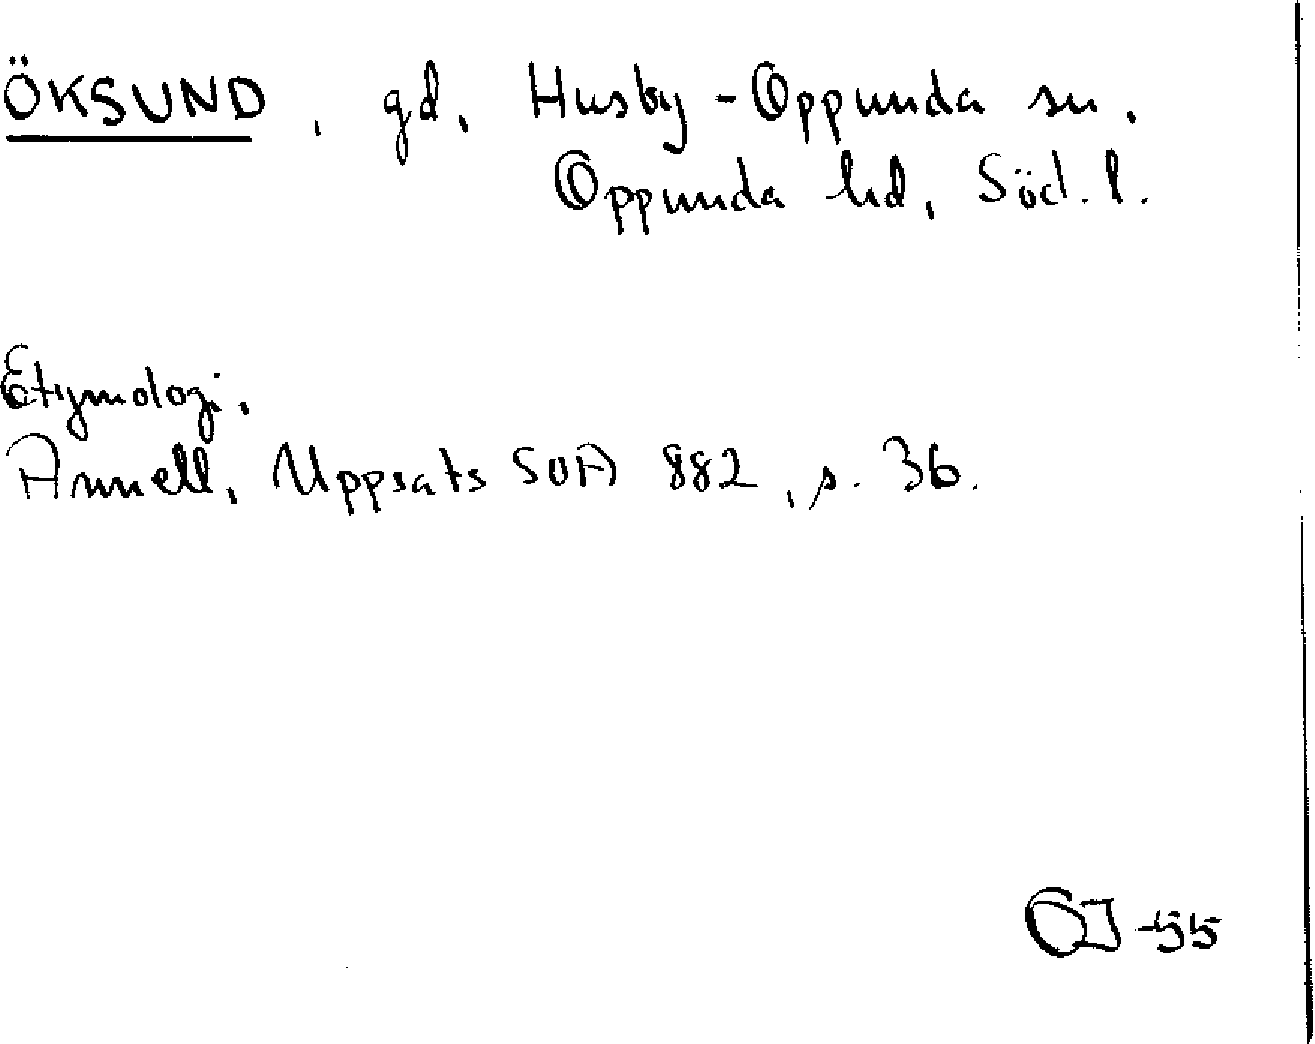 ÖKSUND, gd, Husby-Oppunda sn.
Oppunda hd, Söd. l.
Etymologi.
Annell, Uppsats SOA 882, s. 36.
OJ -55